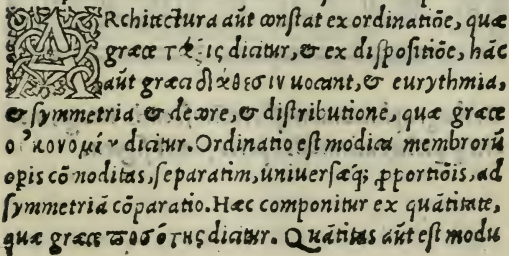 ARchitectura aūt conſtat ex ordinatiōe, quæ
græce τάξις dicitur, & ex diſpoſitiōe, hāc
aūt græci διάθεσιν uocant, & eurythmia,
& ſymmetria & decore, & diſtributione, quæ græce
οἰκονομία dicitur. Ordinatio eſt modica membrorū
opis cōmoditas, ſeparatim, uniuerſæq; ꝓportiōis, ad
ſymmetriā cōparatio. Hæc componitur ex quātitate,
quæ græce ποσότης dicitur. Quātitas aūt eſt modu